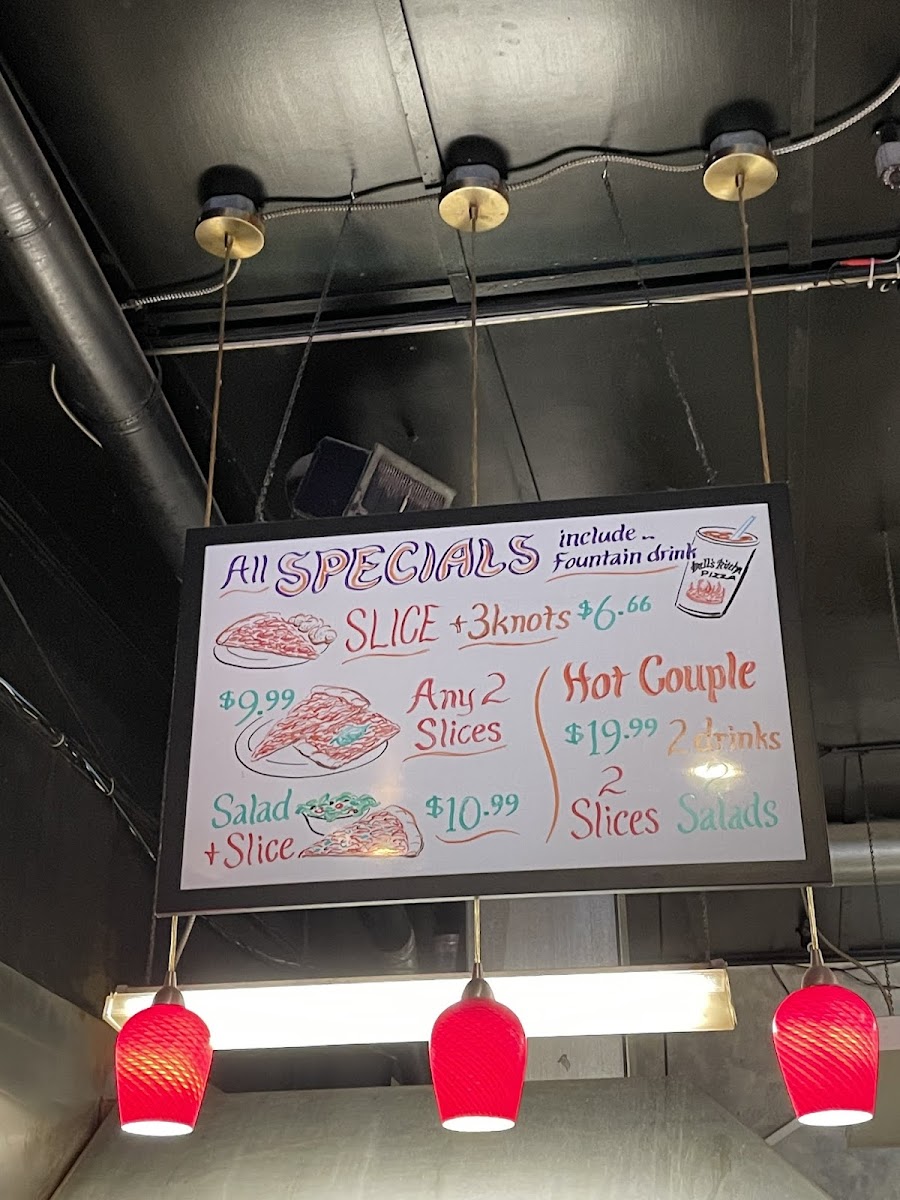 All SPECIALS include
Fountain drink
PIZZA
SLICE +3knots $6.66
$9.99 Any 2
Slices
Salad
+Slice $10.99
Hot Couple
$19.99 2 drinks
2
Slices Salads